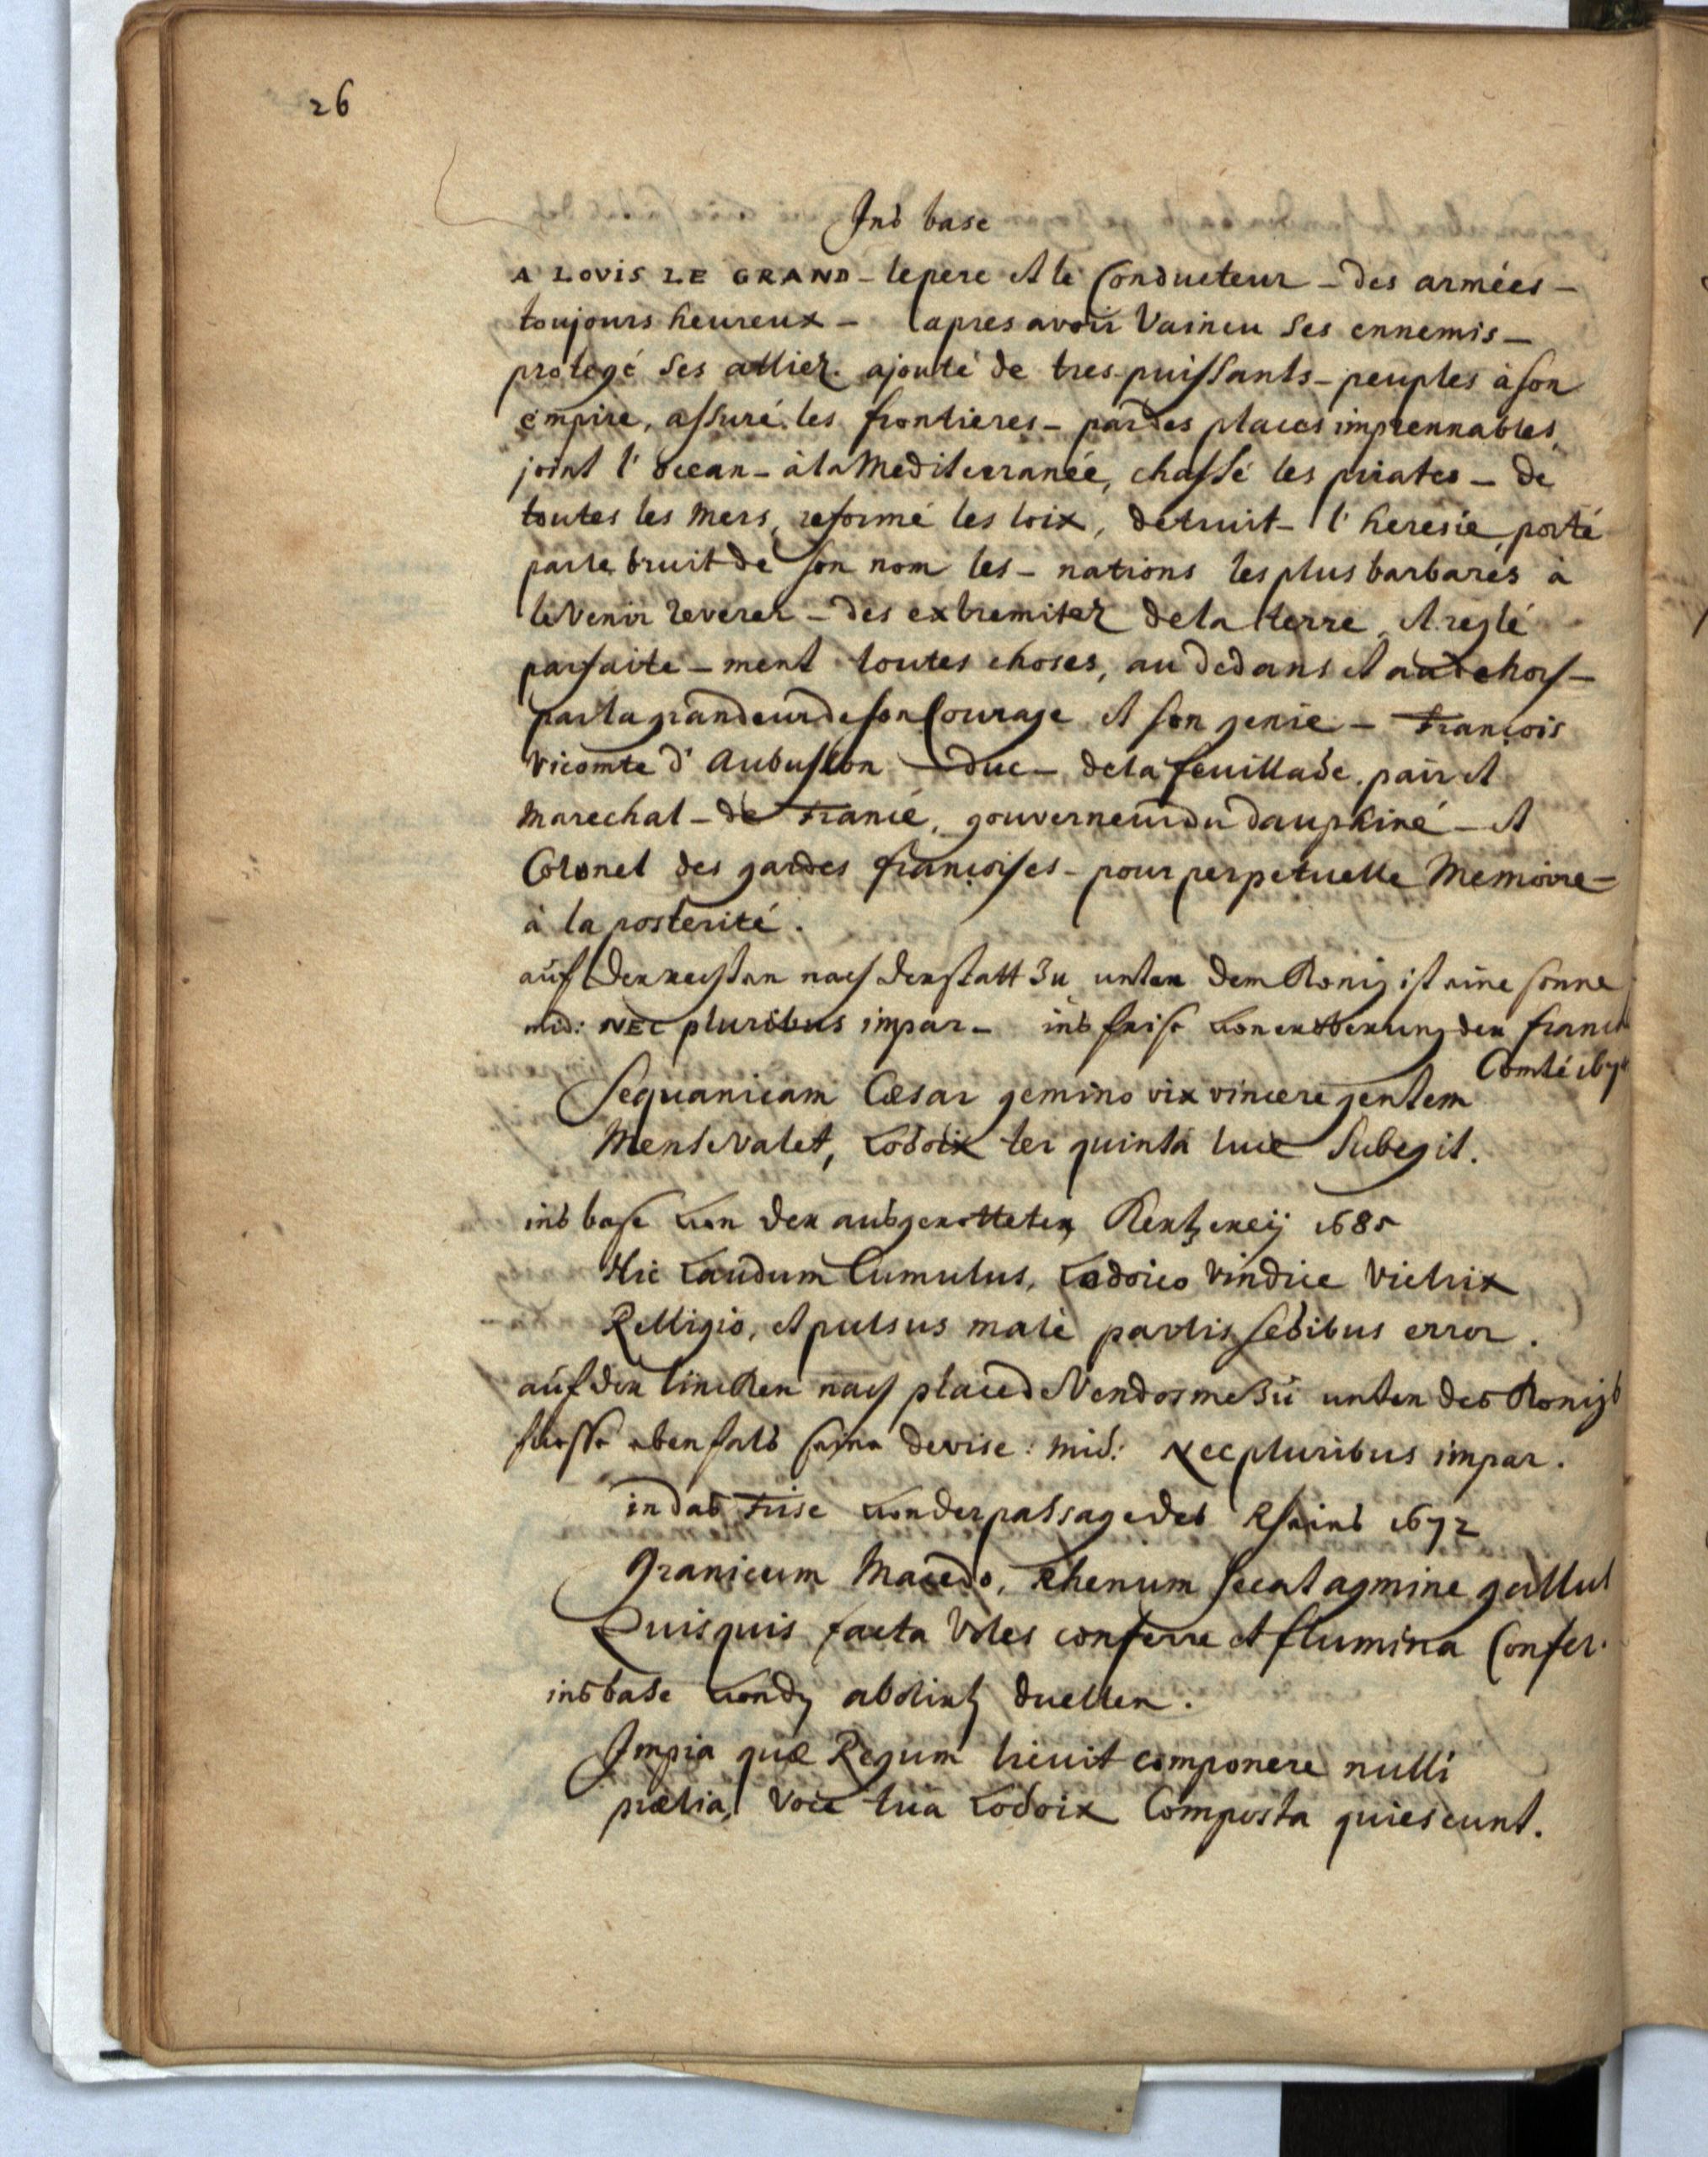 26
Ins base
A LOVIS LE GRAND - le pere et le Conducteur - des armées -
toujours heureux - apres avoir Vaincu ses ennemis -
protegé ses alliez. ajouté de tres puissants - peuples à son
empire, assuré les frontieres - par des places imprennables,
joint l'ocean - à la Mediterranée, chassé les pirates - de
toutes les Mers, reformé les loix, detruit - l'heresie, porté
par le bruit de son nom les - nations les plus barbares à
le Venir reverer - des extremitez de la terre, et reglé
parfaite - ment toutes choses, au dedans et au dehors -
par la grandeur de son Courage et son genie - François
Vicomte d'Aubusson - duc - de la feuillade, pair et
Marechal - de France, gouverneur du Dauphiné - et
Colonel des gardes françoises - pour perpetuelle Memoire -
à la posterité.
auf der rechten nach der statt zu unter dem Konig ist eine sonne
mid: NEC pluribus impar - ins frise von eroberung der franch
Comté 167
Sequanicam Cæsar gemino vix vincere gentem
Mense Valet, Lodoix ter quintâ luce Subegit.
ins base von der ausgerotteten Kertzereÿ 1685
Hic Laudum Cumulus, Lodoico Vindice Victrix
Relligio, et pulsus malè partis sedibus error.
auf der lincken nach place de Vendosme zu unter des Konigs
fuosse ebenfals seine devise: mid: Nec pluribus impar.
in das Frise von der passage des Rheins 1672
Granicum Macedo, Rhenum secat agmine gallus
Quisquis facta Voles conferre et flumina Confer.
ins base von dn abolirtn duellen.
Impia quæ Regum licuit componere nulli
prælia, Voce tua Lodoix Composta quiescunt.